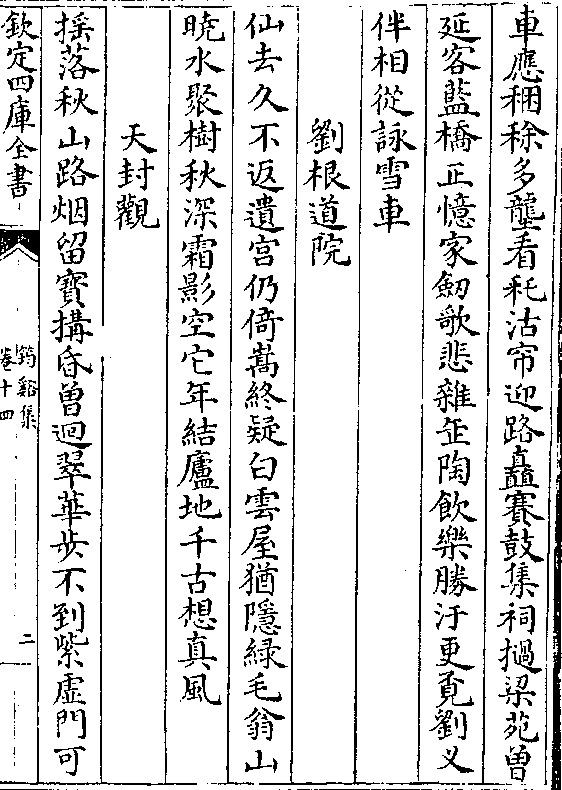 車應稇稌多壟看秅沽帘迎路矗賽鼓集祠撾梁苑曾
延客藍橋正憶家劒歌悲雜缶陶飲樂勝汙更覓劉乂
伴相從詠雪車
劉根道院
仙去久不返遺宮仍倚嵩終疑白雲屋猶隱緑毛翁山
暁水聚樹秋深霜影空它年結廬地千古想真風
天封觀
揺落秋山路烟留寶搆昏曾迴翠華歩不到紫虛門可
欽定四庫全書
鴻谿集
卷十四
二